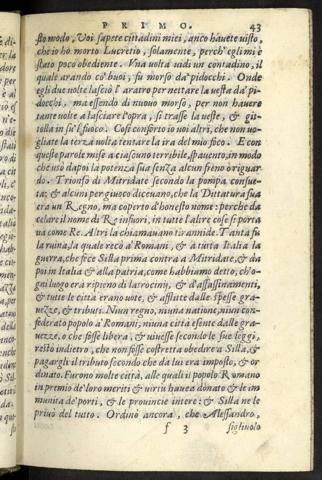 PRIMO. 43
sto modo, Voi sapete cittadini miei, anco hauete visto,
che io ho morto Lucretio, solamente, perch'egli mi è
stato poco obediente. Vna volta vidi un contadino, il
quale arando co' buoi, fu morso da' pidocchi. Onde
egli due volte lasciò l'aratro per nettare la vesta da' pi-
docchi, ma essendo di nuouo morso, per non hauere
tante volte a lasciare l'opra, si trasse la veste, & git-
tolla in su'l fuoco. Cosi conforto io voi altri, che non uo-
gliate la terza uolta tentare la ira del mio foco. E con
queste parole mise a ciascuno terribile spauento, in modo
che usò dapoi la potenza sua senza alcun freno ò riguar-
do. Trionfò di Mitridate secondo la pompa consue-
ta; & alcuni per giuoco diceuano, che la Dittatura sua
era un Regno, ma coperto d'honesto nome: perche da
celare il nome di Re infuori, in tutte l'altre cose si porta
ua come Re. Altri la chiamauano tirannide. Tanta fu
la ruina, la quale recò a' Romani, & a tutta Italia la
guerra, che fice Silla prima contra a Mitridate, & da
poi in Italia & alla patria, come habbiamo detto, ch'o-
gni luogo era ripieno di latrocinij, & d'assassinamenti,
& tutte le città erano vote, & afflitte dalle spesse gra-
uezze, & tributi. Niun regno, niuna natione, niun con-
federato popolo a' Romani, niuna città esente dalle gra-
uezze, o che fosse libera, & viuesse secondo le sue leggi,
restò indietro, che non fosse costretta obedire a Silla, &
pagargli il tributo secondo che da lui era imposto, & or
dinato. Furono molte città, alle quali il popolo Romano
in premio de' loro meriti & virtù hauea donato & le im
munità de' porti, & le prouincie intere: & Silla ne le
priuò del tutto. Ordinò ancora, che Alessandro,
f 3 figliuolo